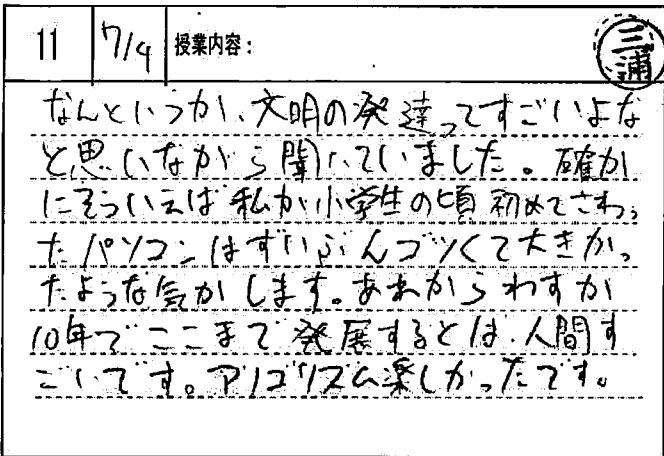 11 7/4 授業内容: 三浦
なんというか、文明の発達ってすごいよな
と思いながら聞いていました。確か
にそういえば私が小学生の頃初めてさわっ
たパソコンはずいぶんゴツくて大きかっ
たような気がします。あれからわずか
10年でここまで発展するとは、人間す
ごいです。アルゴリズム楽しかったです。